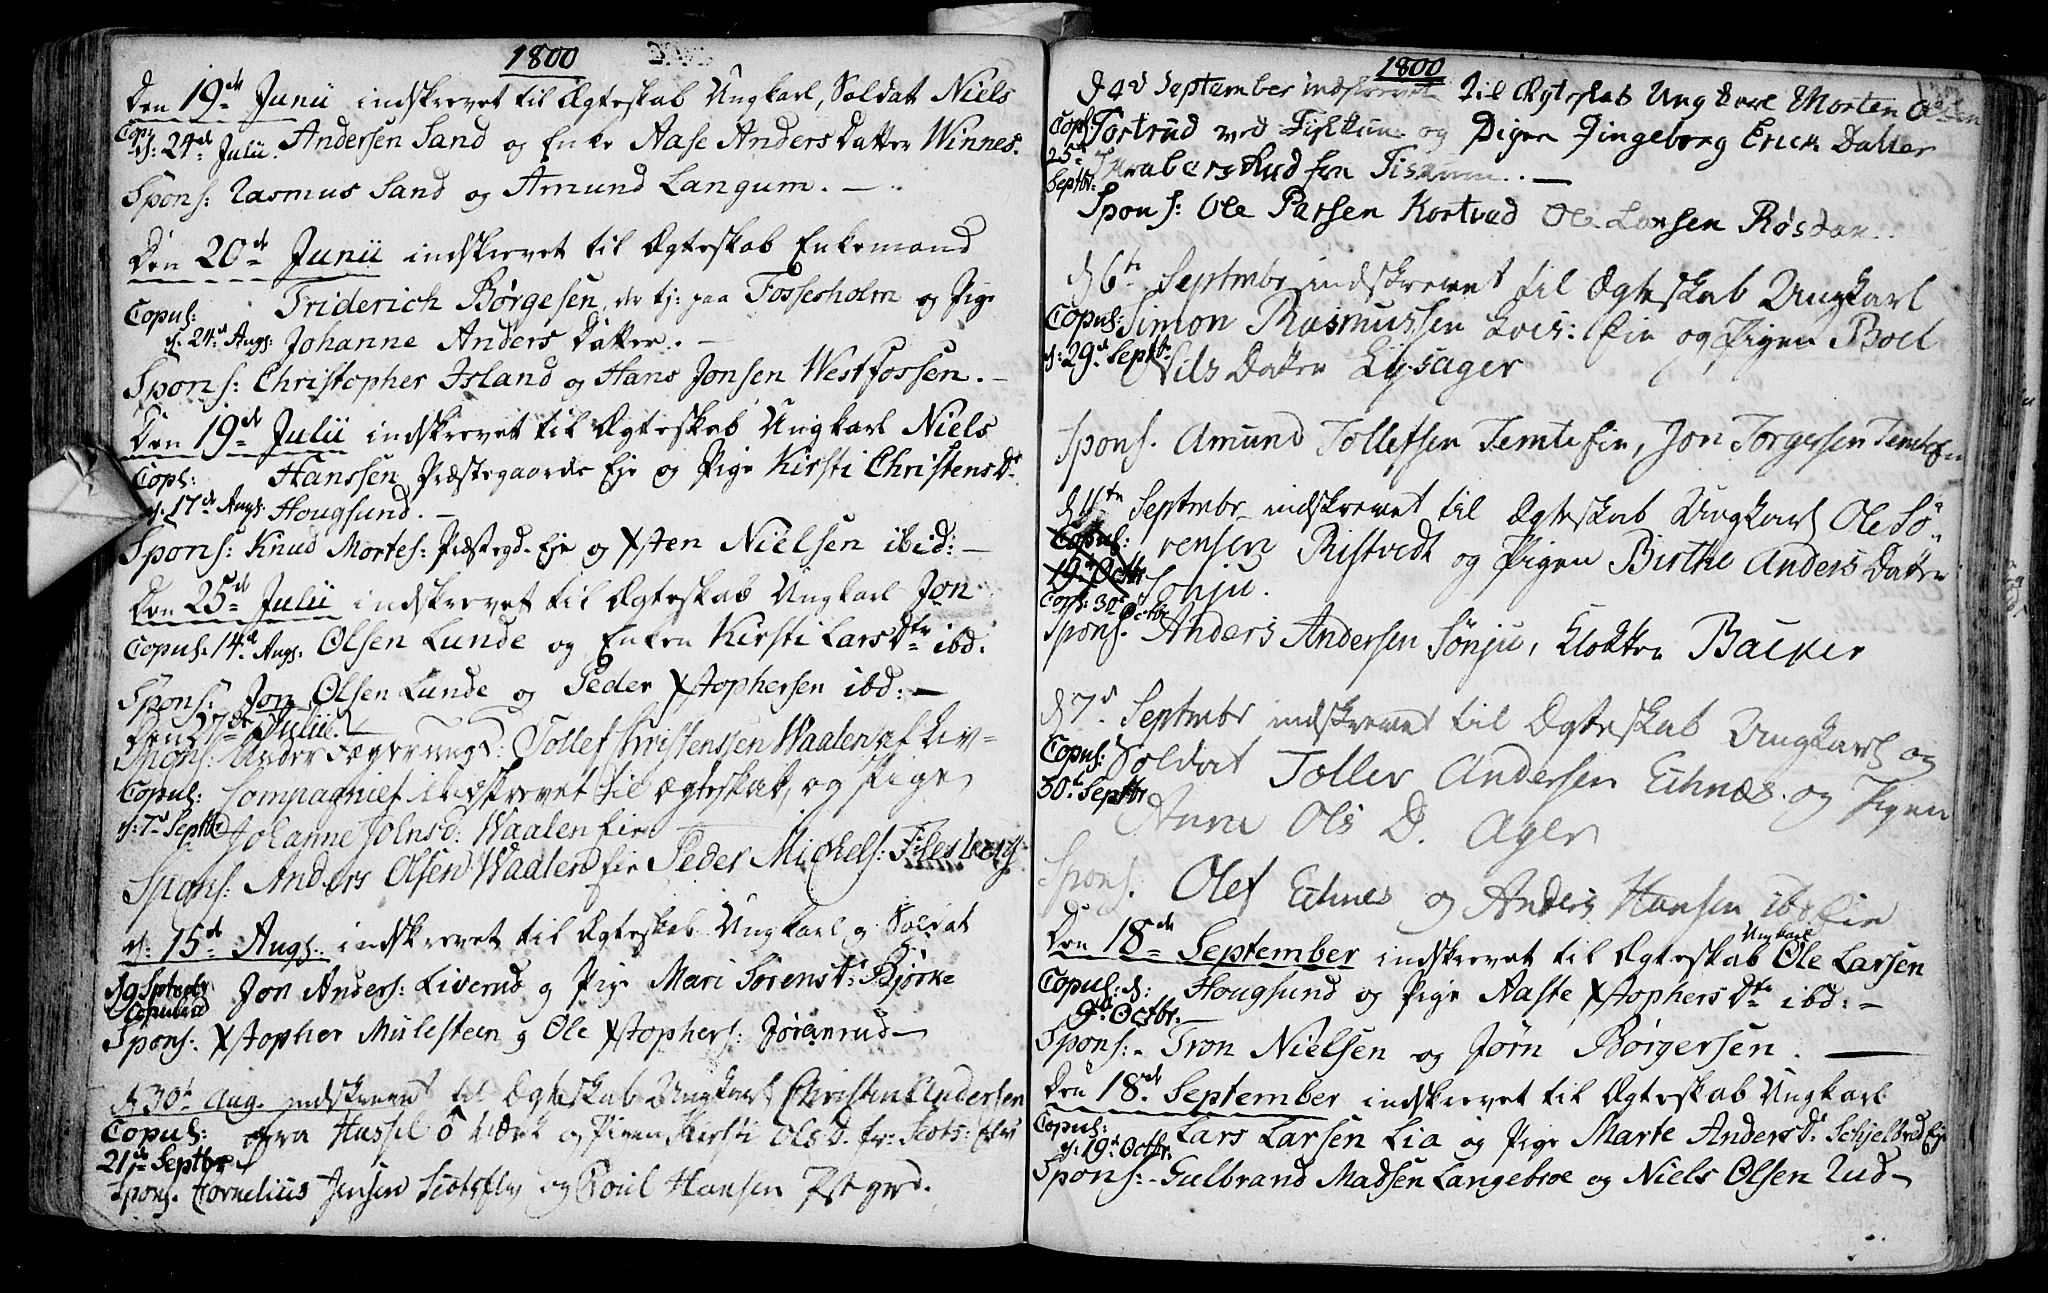 1800
Den 19de Junii indskrevet til Ægteskab Ungkarl, Soldat Niels
Cop: d: 24de Julii. Andersen Sand og Enke Aase Anders Datter Winnes.
Spons: Rasmus Sand og Amund Langum. —
Den 20de Junii indskrevet til Ægteskab Enkemand
Copul: Friderich Börgesen, der tj: paa Fossesholm og Pige
d. 24de Augs: Johanne Anders Datter. —
Spons: Christopher Island og Hans Jonsen Westfossen. —
Den 19de Julii indskrevet til Ægteskab Ungkarl Niels
Copl: Hanssen Præstegaards Eje og Pige Kirsti Christens Dr
d. 17de Augs: Hougsund. —
Spons: Knud Mortes: Præstegd. Eje og Xsten Nielsen ibid: —
Den 25de Julii indskrevet til Ægteskab Ungkarl Jon
Copul: 14de Augs. Olsen Lunde og Enken Kirsti Lars Dtr ibd.
Spons: Jon Olsen Lunde og Peder Xstophersen ibd: —
Den 27de Julii.
Tollef Christenssen Waalen af Liv-
Copul: Compagniet indskrevet til Ægteskab, og Pige
d: 7de Septbr Johanne Johnsd: Waalen Eie
Spons: Anders Olsen Waalen Eie Peder Mickels: Flesberg
d: 15de Augs. indskrevet til Ægteskab Ungkarl og Soldat
d 9 Septembr Jon Anders: Liverud og Pige Mari Sörens Dr Björke
Copulered
Spons: Xstopher Mülesteen og Ole Xstophers: Jöranrud —
d 30te Aug. indskrevet til Ægteskab Ungkarl Christen Andersen
Copul: fra Hassel Værk og Pigen Kirsti Ols D. fr: Scots: Elv
21de Septbr
Spons. Cornelius Jensen Scotselv og Poul Hansen Pstgrd.
1800
d 4de September indskrevet til Ægteskab Ungkarl Morten Olsen
Copl: Tortrud ved Fiskum og Pigen Jingeborg Erich Datter
25de
Septbr: Fiskum. —
Spons: Ole Larsen Kortvad Ole Larsen Rösdan
d 6te Septmbr indskrevet til Ægteskab Ungkarl
Copul: Simon Rasmussen Eie og Pigen Boel
d: 29de Septbr Nils Datter Lysager
Spons. Amund Tollefsen Temte Eie, Jon Torgersen Temte Eie
d 11te Septmbr indskrevet til Ægteskab Ungkarl Ole Sö-
Copul: rensen Ristvedt og Pigen Birthe Anders Datter
19de Octbr Sönju.
Copl: 30te Octbr
Spons. Anders Andersen Sönju, Klokker Backer
d 7de Septmbr indskrevet til Ægteskab Ungkarl og
Copul: Soldat Tollev Andersen Eehnæs og Pigen
30te Septbr Anne Ols D. Ager
Spons. Olef Eehnes og Anders Hansen ibd Eie
Den 18de September indskrevet til Ægteskab Ungkarl Ole Larsen
Copul: d: Hougsund og Pige Aaste Xstophers Dtr ibd: —
9de Octbr. —
Spons: Tron Nielsen og Jörn Börgersen. —
Den 18de September indskrevet til Ægteskab Ungkarl
Copul: Lars Larsen Lia og Pige Marte Anders Dr Schjelbred Eje
d. 19de Octbr.
Spons: Gulbrand Madsen Langebroe og Niels Olsen Rud —